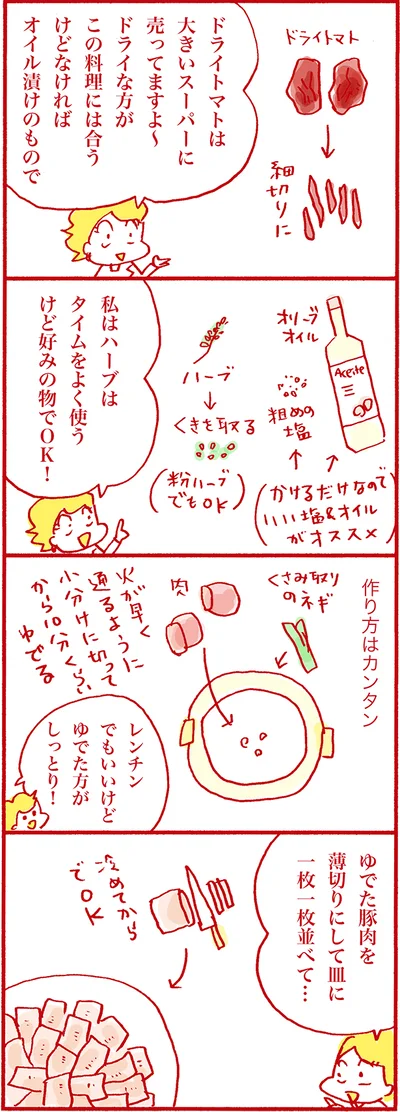 ドライトマト
細切りに
ドライトマトは
大きいスーパーに
売ってますよ〜
ドライな方が
この料理には合う
けどなければ
オイル漬けのもので
オリーブ
オイル
Aceite
粗めの
塩
(かけるだけなので
いい塩&オイル
がオススメ)
ハーブ
くきを取る
(粉ハーブ
でもOK)
私はハーブは
タイムをよく使う
けど好みの物でOK!
作り方はカンタン
くさみ取り
のネギ
肉
火が早く
通るように
小分けに切って
から10分くらい
ゆでる
レンチン
でもいいけど
ゆでた方が
しっとり!
ゆでた豚肉を
薄切りにして皿に
一枚一枚並べて…
冷めてから
でOK